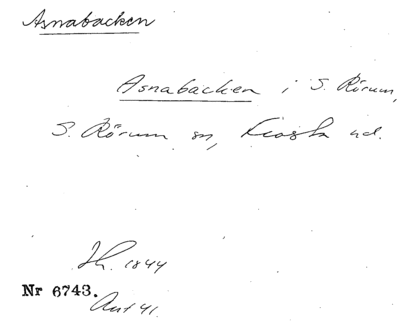 Asnabacken
Asnabacken i S. Rörum,
S. Rörum sn, Frosta hd.
Jh. 1844
Nr 6743.
Ant 41.